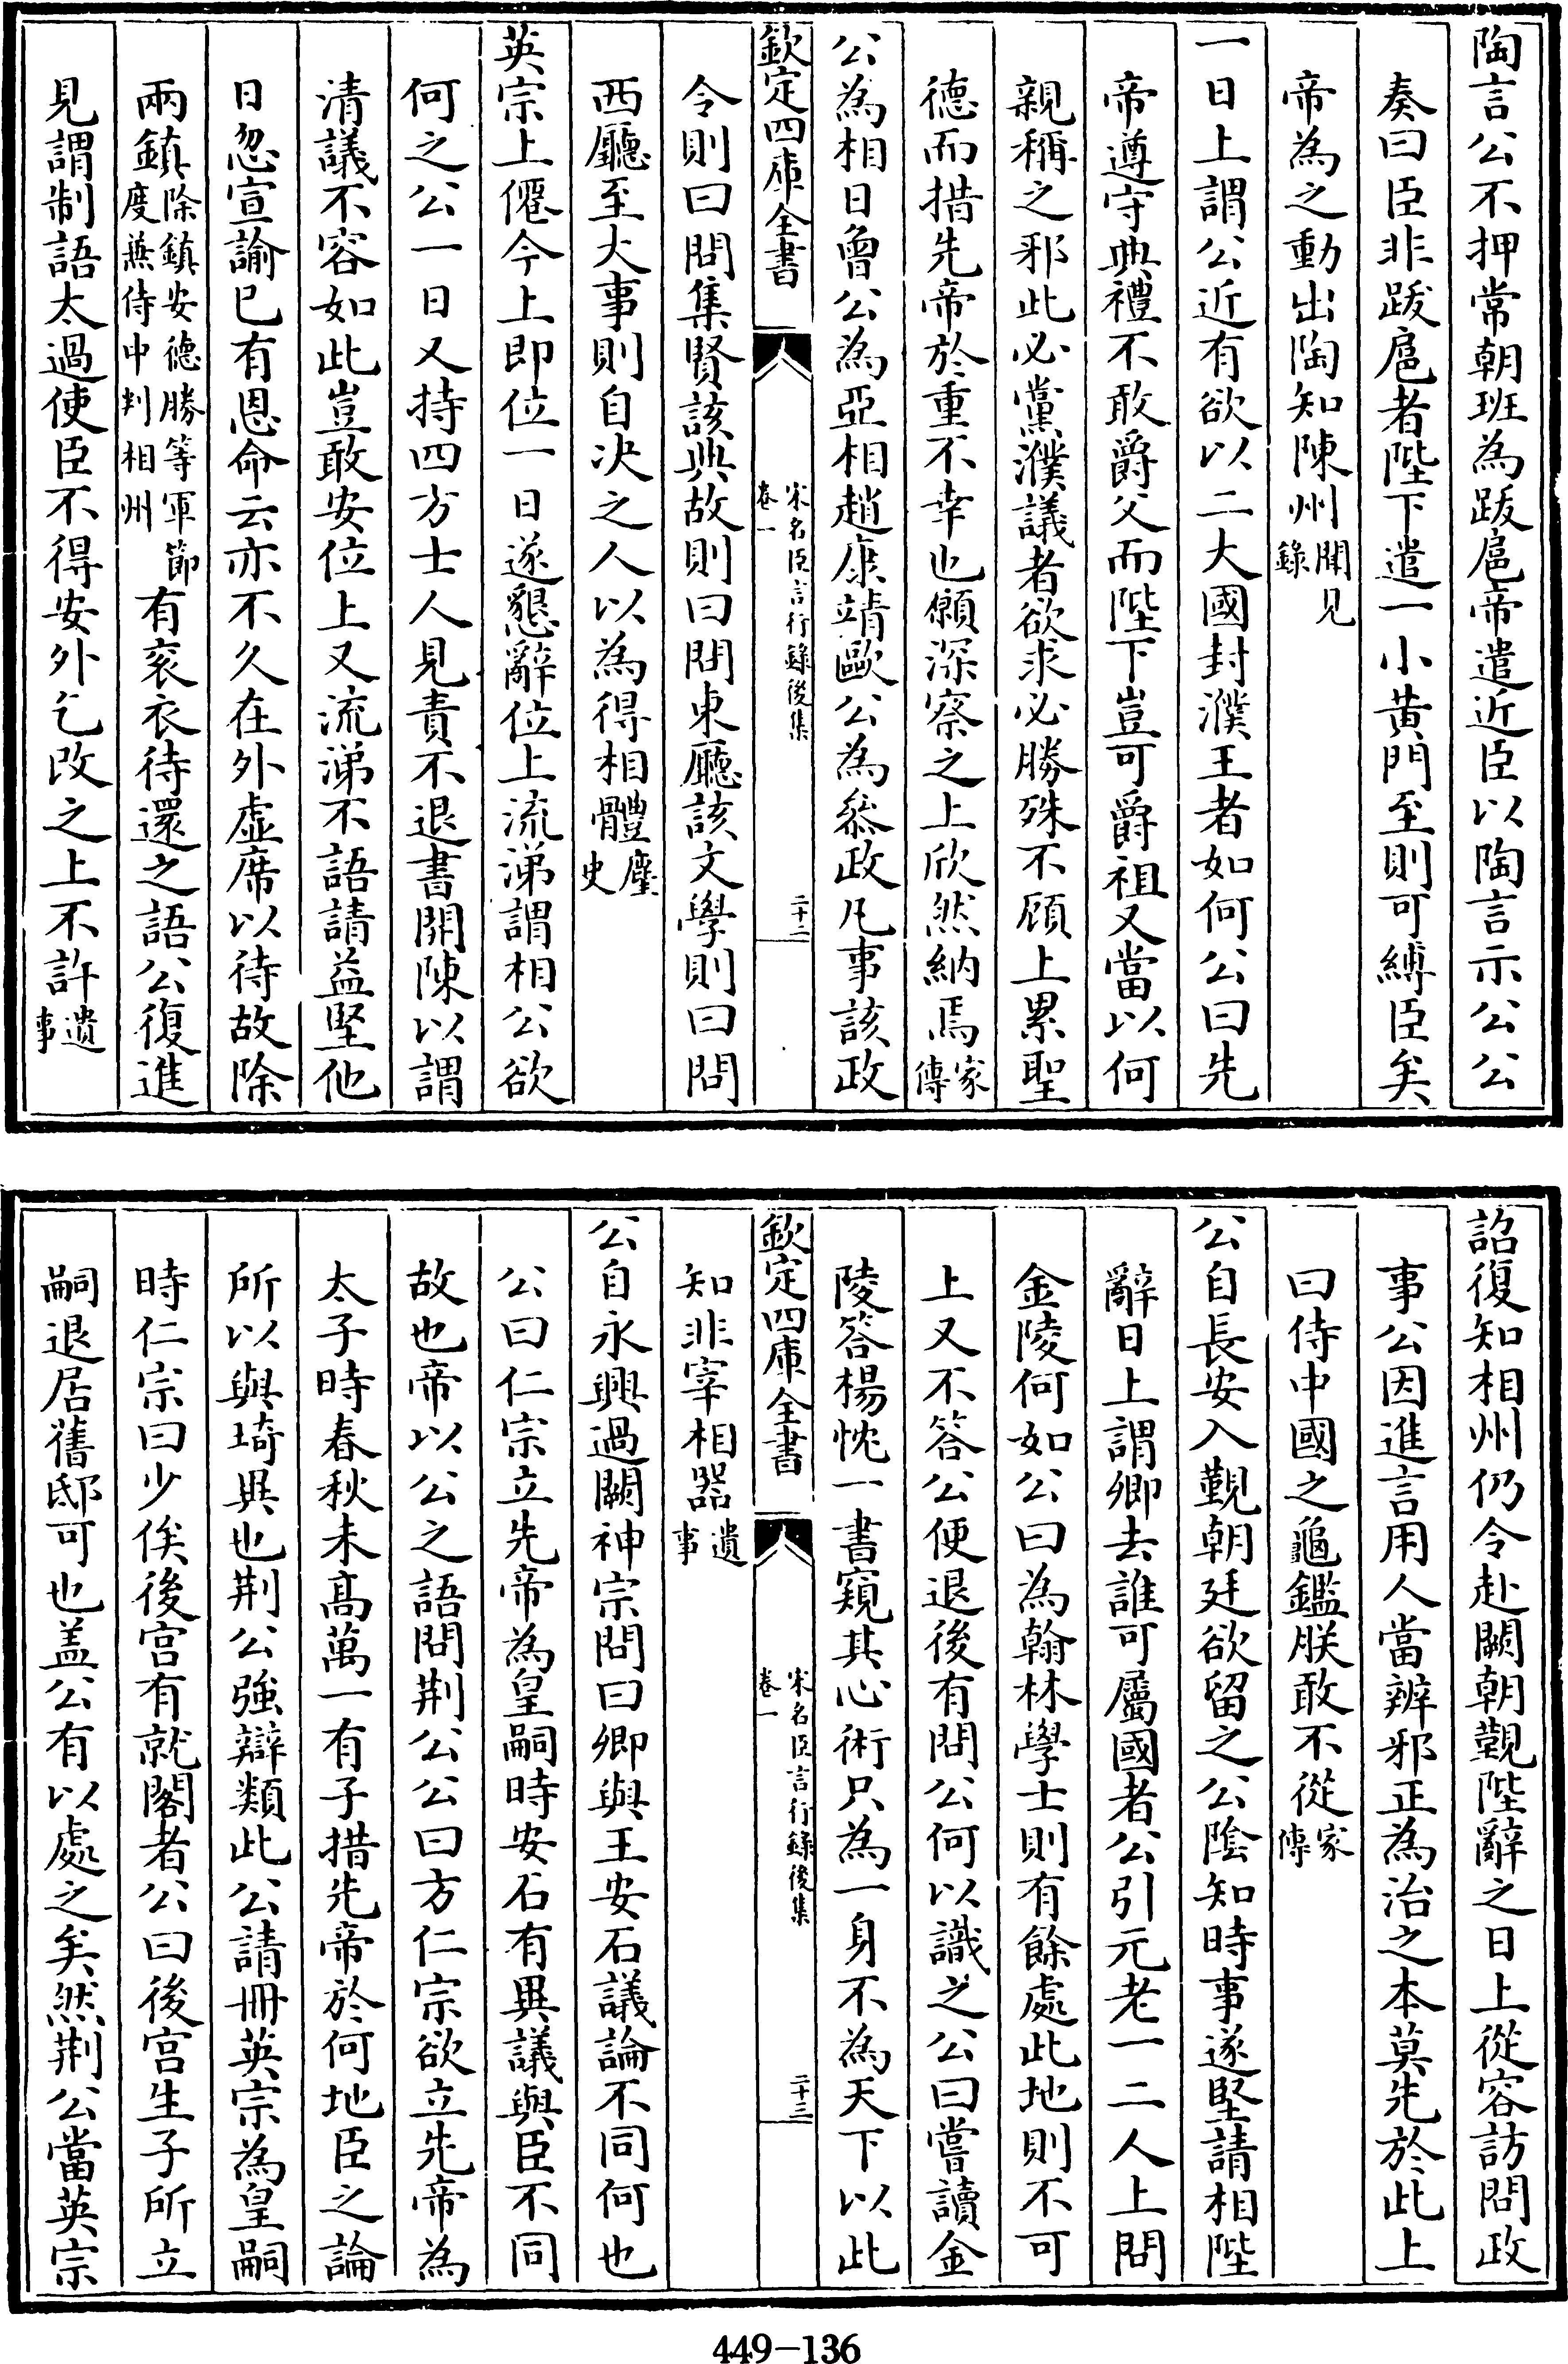 陶言公不押常朝班為跋扈帝遣近臣以陶言示公公
奏曰臣非跋扈者陛下遣一小黄門至則可縛臣矣
帝為之動出陶知陳州聞見錄
一日上謂公近有欲以二大國封濮王者如何公曰先
帝遵守典禮不敢爵父而陛下豈可爵祖又當以何
親稱之邪此必黨濮議者欲求必勝殊不顧上累聖
德而措先帝於重不幸也願深察之上欣然納焉家傳
公為相日曾公為亞相趙康靖歐公為叅政凡事該政
欽定四庫全書
宋名臣言行録後集
卷一
二十二
令則曰問集賢該典故則曰問東廳該文學則曰問
西廳至大事則自决之人以為得相體麈史
英宗上僊今上即位一日遂懇辭位上流涕謂相公欲
何之公一日又持四方士人見責不退書開陳以謂
清議不容如此豈敢安位上又流涕不語請益堅他
日忽宣諭已有恩命云亦不久在外虚席以待故除
兩鎮除鎮安德勝等軍節度兼侍中判相州有衮衣待還之語公復進
見謂制語太過使臣不得安外乞改之上不許遺事
詔復知相州仍令赴闕朝覲陛辭之日上從容訪問政
事公因進言用人當辨邪正為治之本莫先於此上
曰侍中國之龜鑑朕敢不從家傳
公自長安入覲朝廷欲留之公陰知時事遂堅請相陛
辭日上謂卿去誰可屬國者公引元老一二人上問
金陵何如公曰為翰林學士則有餘處此地則不可
上又不答公便退後有問公何以識之公曰嘗讀金
陵答楊忱一書窺其心術只為一身不為天下以此
欽定四庫全書
宋名臣言行録後集
卷一
二十三
知非宰相器遺事
公自永興過闕神宗問曰卿與王安石議論不同何也
公曰仁宗立先帝為皇嗣時安石有異議與臣不同
故也帝以公之語問荆公公曰方仁宗欲立先帝為
太子時春秋未髙萬一有子措先帝於何地臣之論
所以與琦異也荆公強辯類此公請冊英宗為皇嗣
時仁宗曰少俟後宫有就閣者公曰後宫生子所立
嗣退居舊邸可也盖公有以處之矣然荆公當英宗
449-136